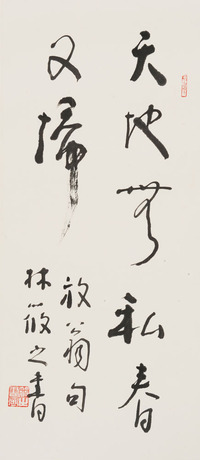 天地無私春
又歸
放翁句
林筱之書